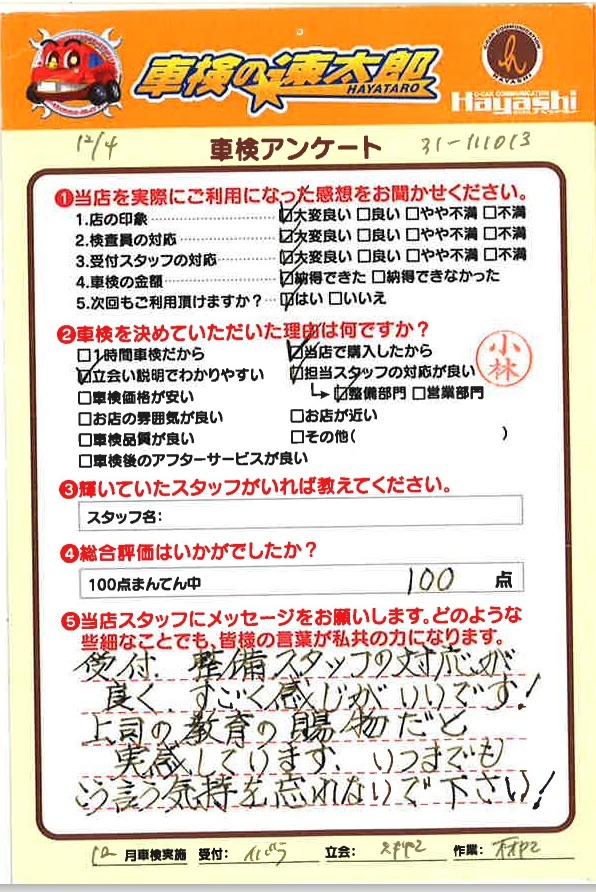 車検の速太郎
HAYATARO
CAR COMMUNICATION
h
HAYASHI
C-CAR COMMUNICATION
Hayashi
12/4
車検アンケート
31-111013
❶当店を実際にご利用になった感想をお聞かせください。
1.店の印象 ☑大変良い □良い □やや不満 □不満
2.検査員の対応 ☑大変良い □良い □やや不満 □不満
3.受付スタッフの対応 ☑大変良い □良い □やや不満 □不満
4.車検の金額 ☑納得できた □納得できなかった
5.次回もご利用頂けますか? ☑はい □いいえ
❷車検を決めていただいた理由は何ですか?
□1時間車検だから ☑当店で購入したから
☑立会い説明でわかりやすい ☑担当スタッフの対応が良い
□車検価格が安い ☑整備部門 □営業部門
□お店の雰囲気が良い □お店が近い
□車検品質が良い □その他( )
□車検後のアフターサービスが良い
小林
❸輝いていたスタッフがいれば教えてください。
スタッフ名:
❹総合評価はいかがでしたか?
100点まんてん中 100 点
❺当店スタッフにメッセージをお願いします。どのような
些細なことでも、皆様の言葉が私共の力になります。
受付、整備スタッフの対応が
良く、すごく感じがいいです!
上司の教育の賜物だと
実感しています、いつまでも
こう言う気持を忘れないで下さい!
12 月車検実施 受付: 立会: 作業: